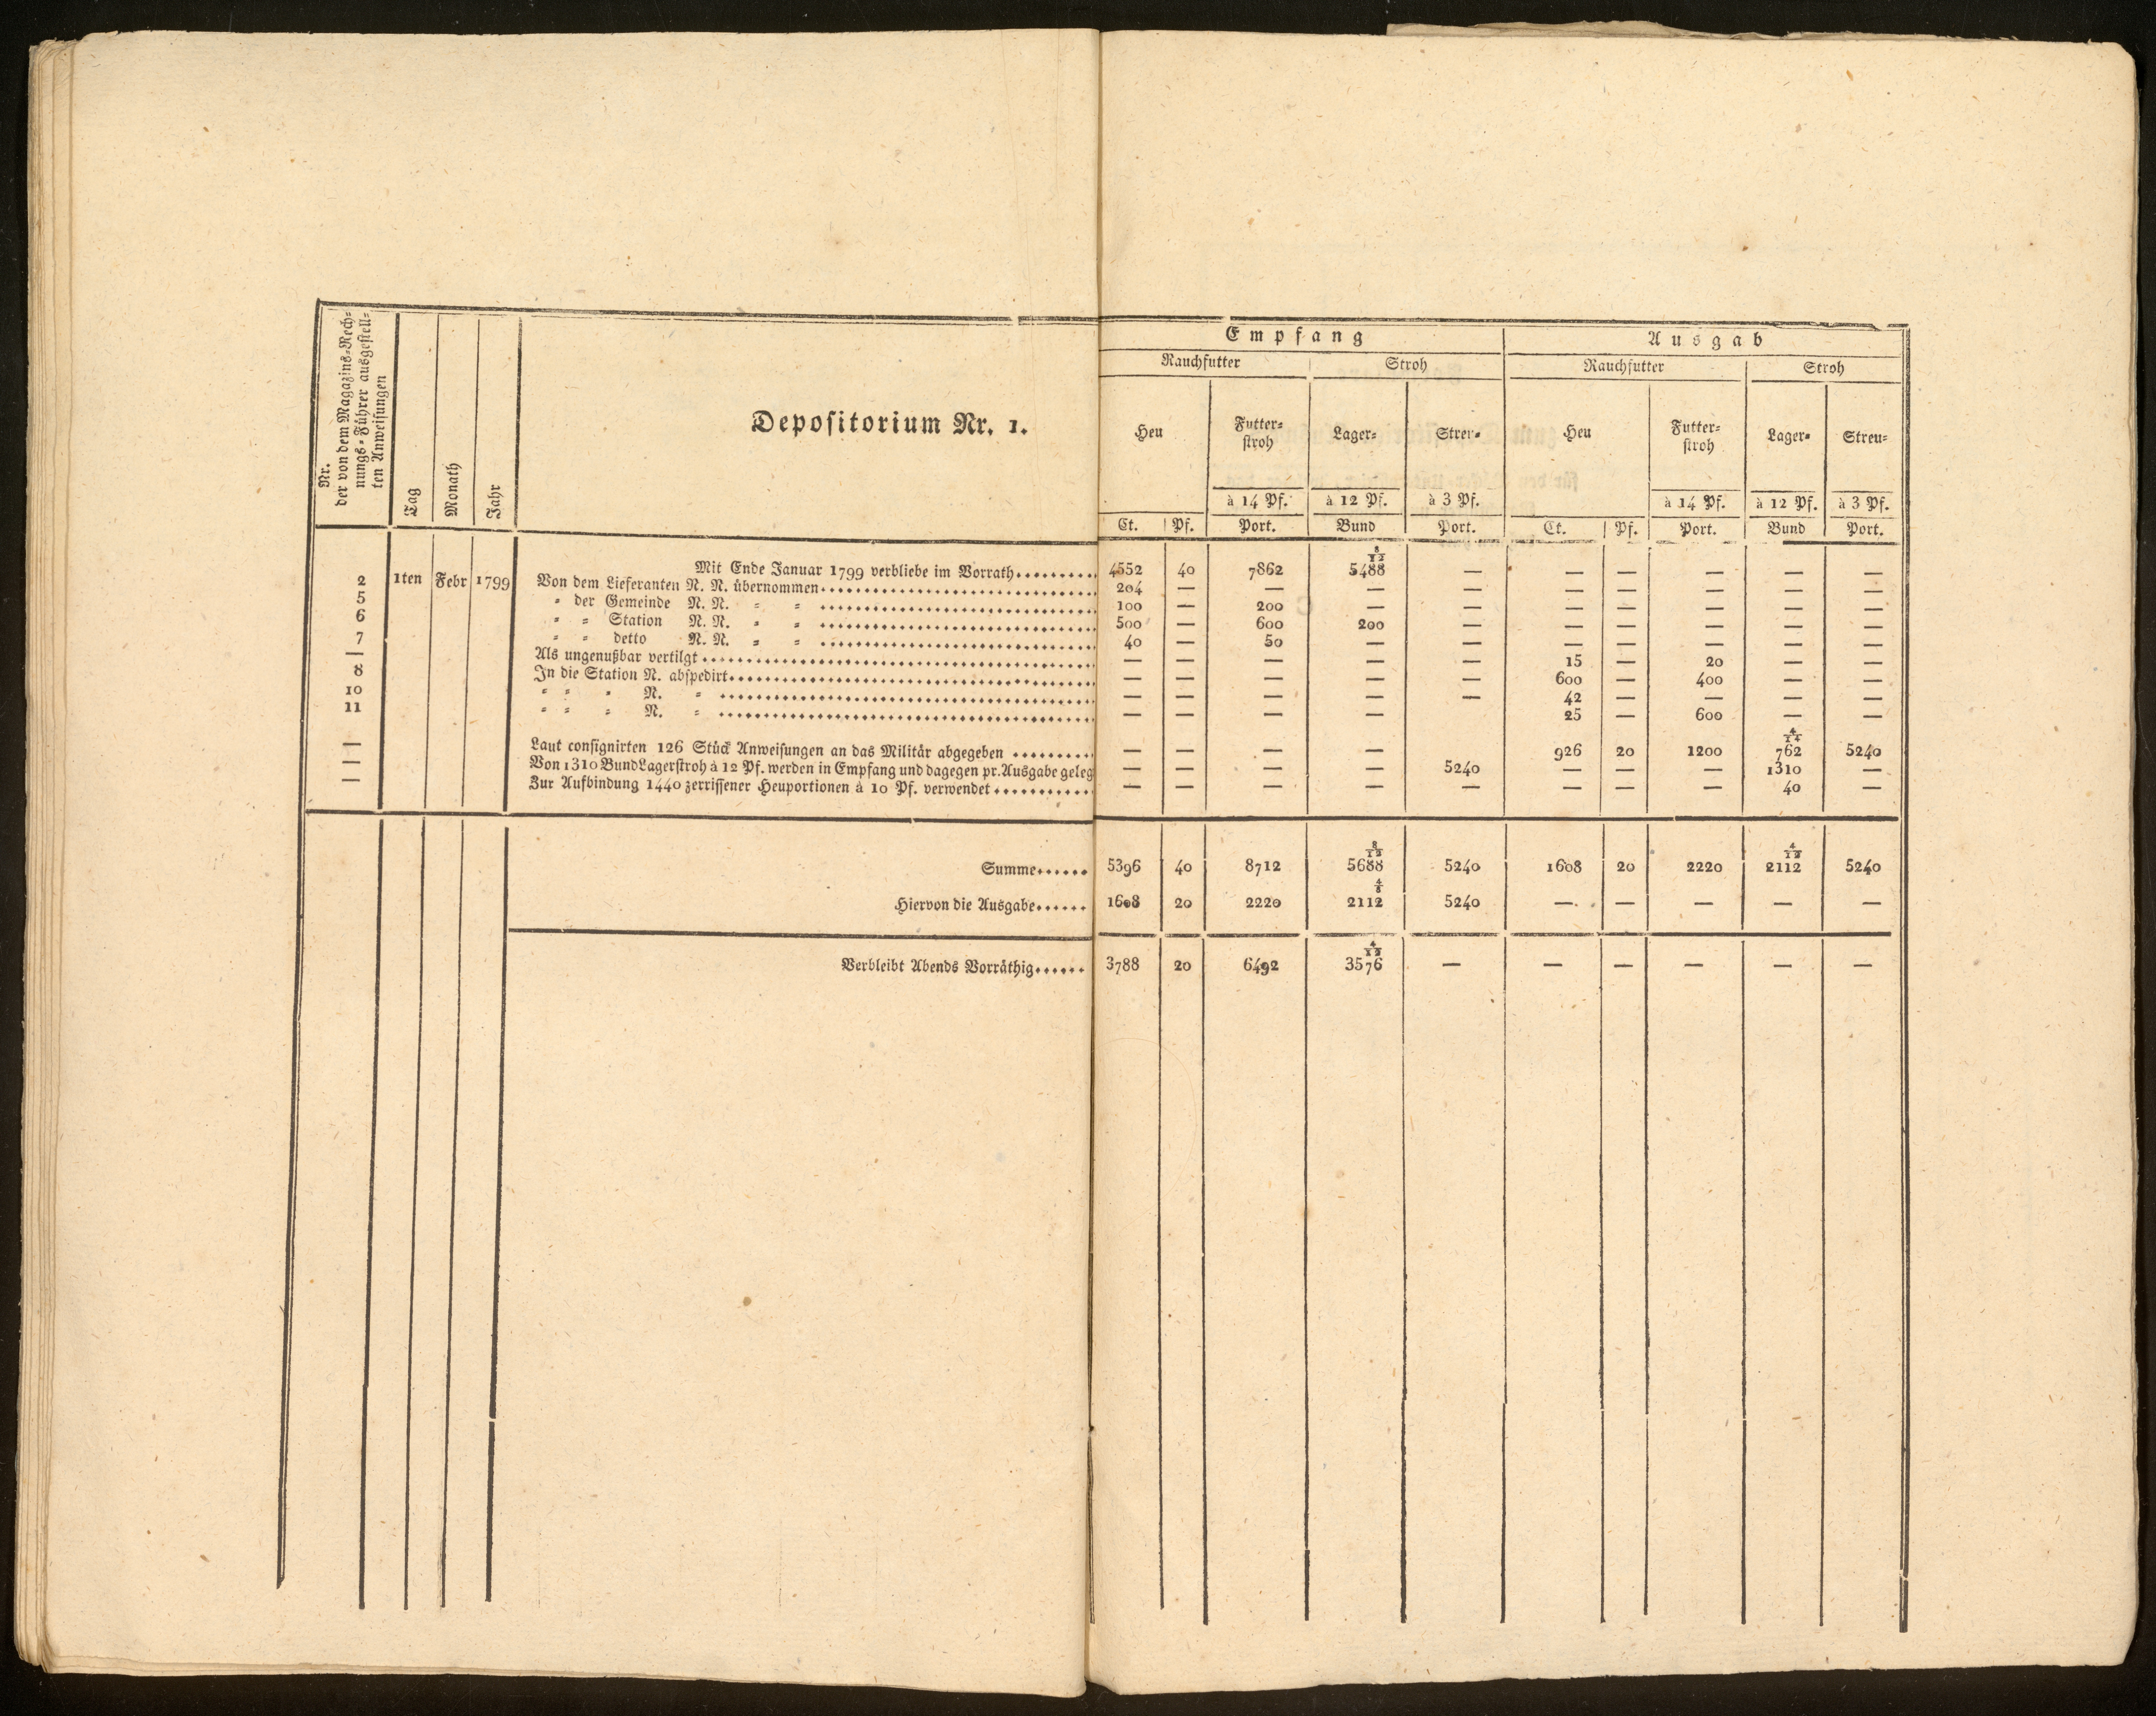 Nr.
der von dem Magazins-Rech-
nungs-Führer ausgestell-
ten Anweisungen
Tag
Monath
Jahr
Depositorium Nr. 1.
Empfang Ausgab
Rauchfutter Stroh Rauchfutter Stroh
Heu Futter-
stroh Lager- Streu- Heu Futter-
stroh Lager- Streu-
à 14 Pf. à 12 Pf. à 3 Pf. à 14 Pf. à 12 Pf. à 3 Pf.
Ct. Pf. Port. Bund Port. Ct. Pf. Port. Bund Port.
Mit Ende Januar 1799 verbliebe im Vorrath 4552 40 7862 5488 8/12 — — — — — —
2 1ten Febr 1799 Von dem Lieferanten N. N. übernommen 204 — — — — — — — — —
5 = der Gemeinde N. N. = = 100 — 200 — — — — — — —
6 = = Station N. N. = = 500 — 600 200 — — — — — —
7 = = detto N. N. = = 40 — 50 — — — — — — —
— Als ungenußbar vertilgt — — — — — 15 — 20 — —
8 In die Station N. abspedirt — — — — — 600 — 400 — —
10 = = = N. = — — — — — 42 — — — —
11 = = = N. = — — — — 25 — 600 — —
— Laut consignirten 126 Stück Anweisungen an das Militär abgegeben — — — — — 926 20 1200 762 4/14 5240
— Von 1310 Bund Lagerstroh à 12 Pf. werden in Empfang und dagegen pr. Ausgabe geleg — — — — 5240 — — — 1310 —
— Zur Aufbindung 1440 zerrissener Heuportionen à 10 Pf. verwendet — — — — — — — — 40 —
Summe 5396 40 8712 5688 8/12 5240 1608 20 2220 2112 4/12 5240
Hiervon die Ausgabe 1608 20 2220 2112 4/8 5240 — — — — —
Verbleibt Abends Vorräthig 3788 20 6492 3576 4/12 — — — — — —